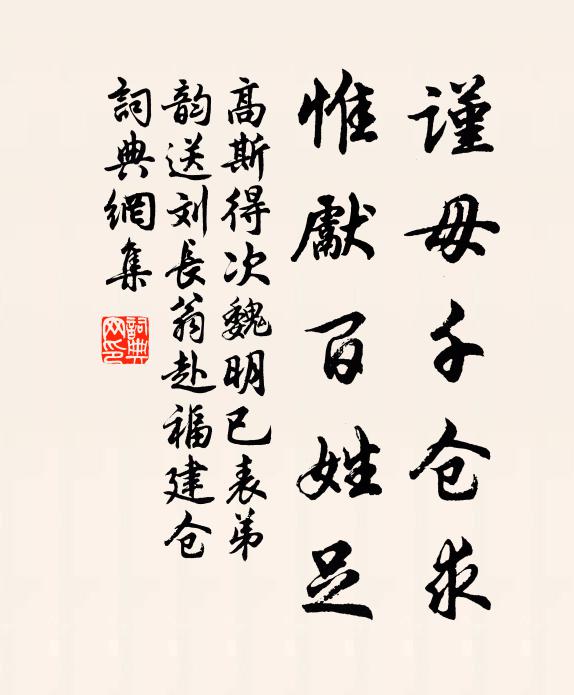 謹毋千仓求
惟獻百姓足
高斯得次魏明已表弟
韵送刘長翁赴福建仓
詞典網集